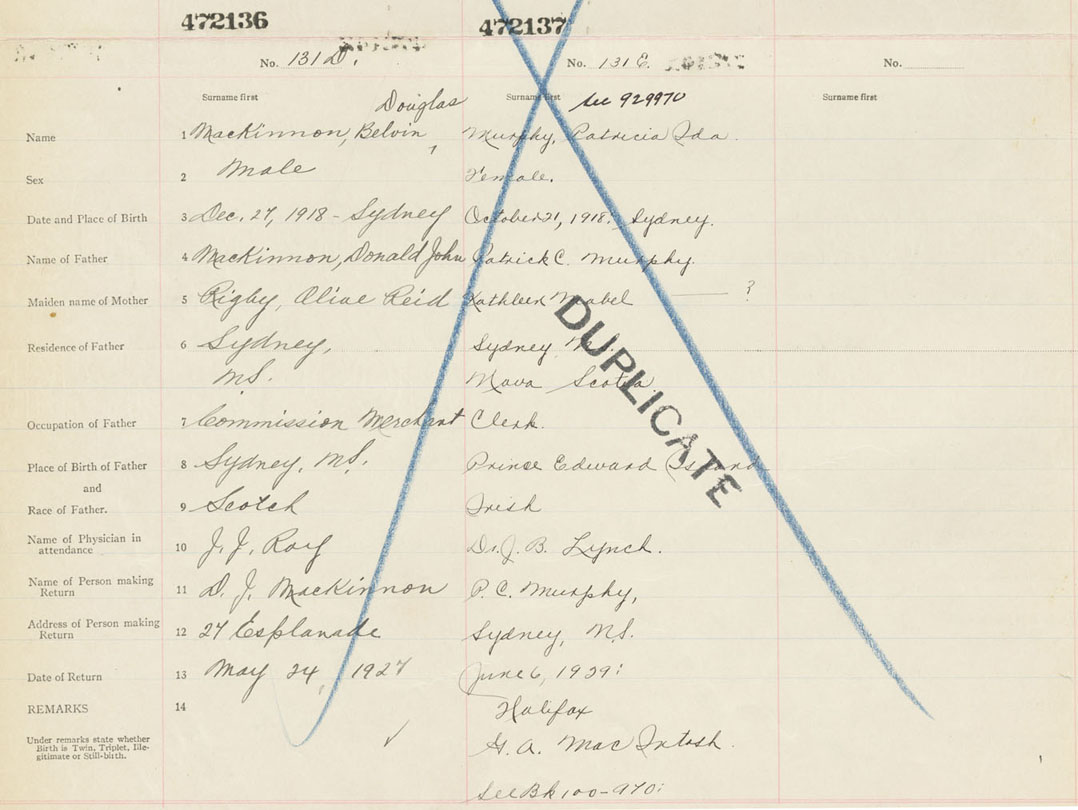 472136 472137
No. 131 D. No. 131 E. No.
Surname first Surname first See 929970 Surname first
Douglas
Name 1 MacKinnon, Belvin, Murphy, Patricia Ida.
Sex 2 Male Female.
Date and Place of Birth 3 Dec. 27, 1918 - Sydney October 21, 1918. Sydney.
Name of Father 4 MacKinnon, Donald John Patrick C. Murphy.
Maiden name of Mother 5 Rigby, Olive Reid Kathleen Mabel —— ?
Residence of Father 6 Sydney, Sydney N.S.
N.S. Nova Scotia
DUPLICATE
Occupation of Father 7 Commission Merchant Clerk.
Place of Birth of Father 8 Sydney, N.S. Prince Edward Island
and
Race of Father. 9 Scotch Irish
Name of Physician in
attendance 10 J. J. Roy Dr. J. B. Lynch.
Name of Person making
Return 11 D. J. MacKinnon P. C. Murphy,
Address of Person making
Return 12 27 Esplanade Sydney, N.S.
Date of Return 13 May 24, 1927 June 6, 1939:
REMARKS 14 Halifax
Under remarks state whether
Birth is Twin, Triplet, Ille-
gitimate or Still-birth. G. A. MacIntosh.
See Bk 100-970: